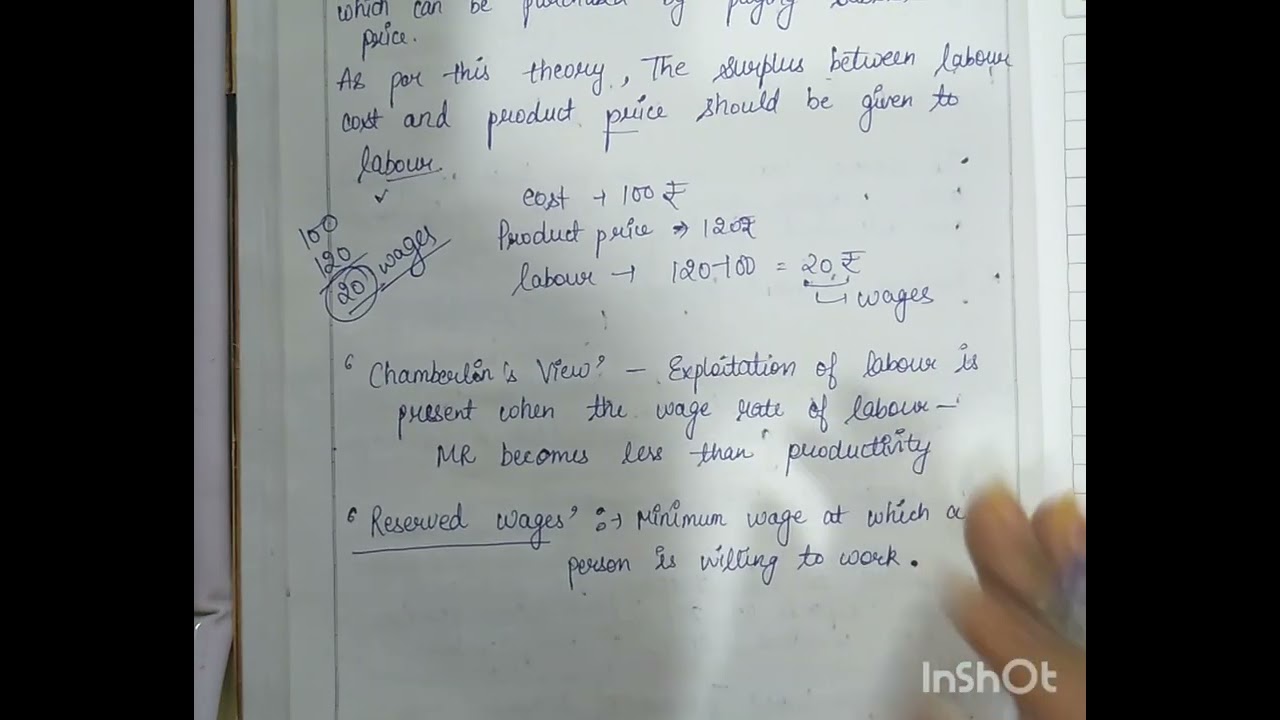 which can be purchased by paying
price.
As per this theory, The surplus between labour
cost and product price should be given to
labour.
cost → 100 ₹
Product price → 120₹
labour → 120-100 = 20 ₹
wages
100
120
20 wages
‘Chamberlin's View’ – Exploitation of labour is
present when the wage rate of labour –
MR becomes less than productivity
‘Reserved wages’ :→ Minimum wage at which a
person is willing to work.
InShOt